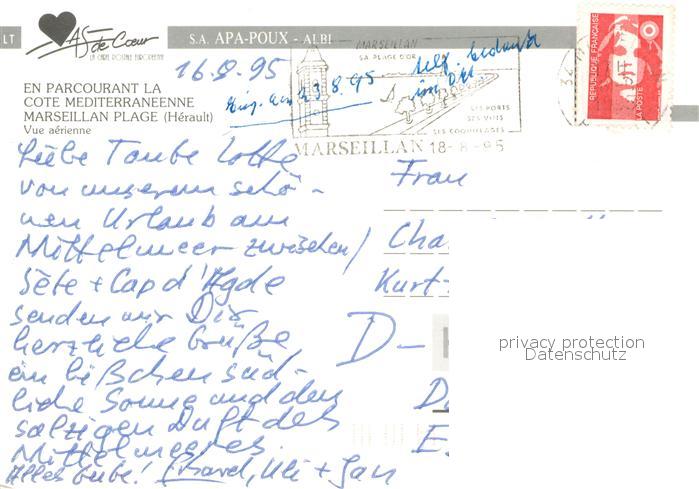 LT
As de Cœur
LA CARTE POSTALE EUROPEENNE
S.A. APA-POUX - ALBI
EN PARCOURANT LA
COTE MEDITERRANEENNE
MARSEILLAN PLAGE (Hérault)
Vue aérienne
16.8.95
23.8.95
MARSEILLAN
SA PLAGE D'OR
SES PORTS
SES VINS
SES COQUILLAGES
MARSEILLAN 18-8-95
REPUBLIQUE FRANÇAISE
LA POSTE
Liebe Tante Lotte
von unserem schö-
nen Urlaub am
Mittelmeer zwischen
Sète + Cap d'Agde
senden wir Dir
herzliche Grüße
ein bißchen süd-
liche Sonne und den
salzigen Duft des
Mittelmeeres.
Alles Gute! Uli + Jan
Frau
Cha
Kurt-
D-
D
E
privacy protection
Datenschutz